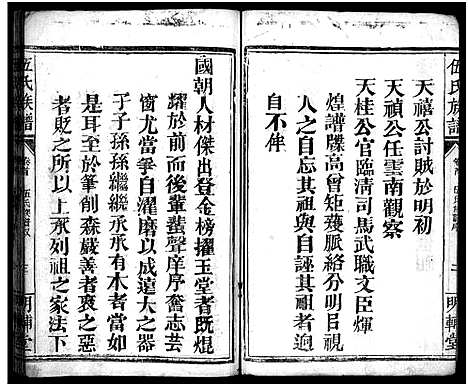 伍氏族譜
卷首
天禧公討賊於明初
天禎公任雲南觀察
天桂公官臨清司馬武職文臣煇
煌譜牒高曾矩矱脈絡分明目視
人之自忘其祖與自誣其祖者逈
自不侔
國朝人材傑出登金榜擢玉堂者既焜
耀於前而後輩蜚聲庠序奮志芸
窗尤當爭自濯磨以成遠大之器
子子孫孫繼繼承承有木者當如
是耳至於筆創森嚴善者褒之惡
者貶之所以上承列祖之家法下
伍氏族譜
卷首
明輔堂